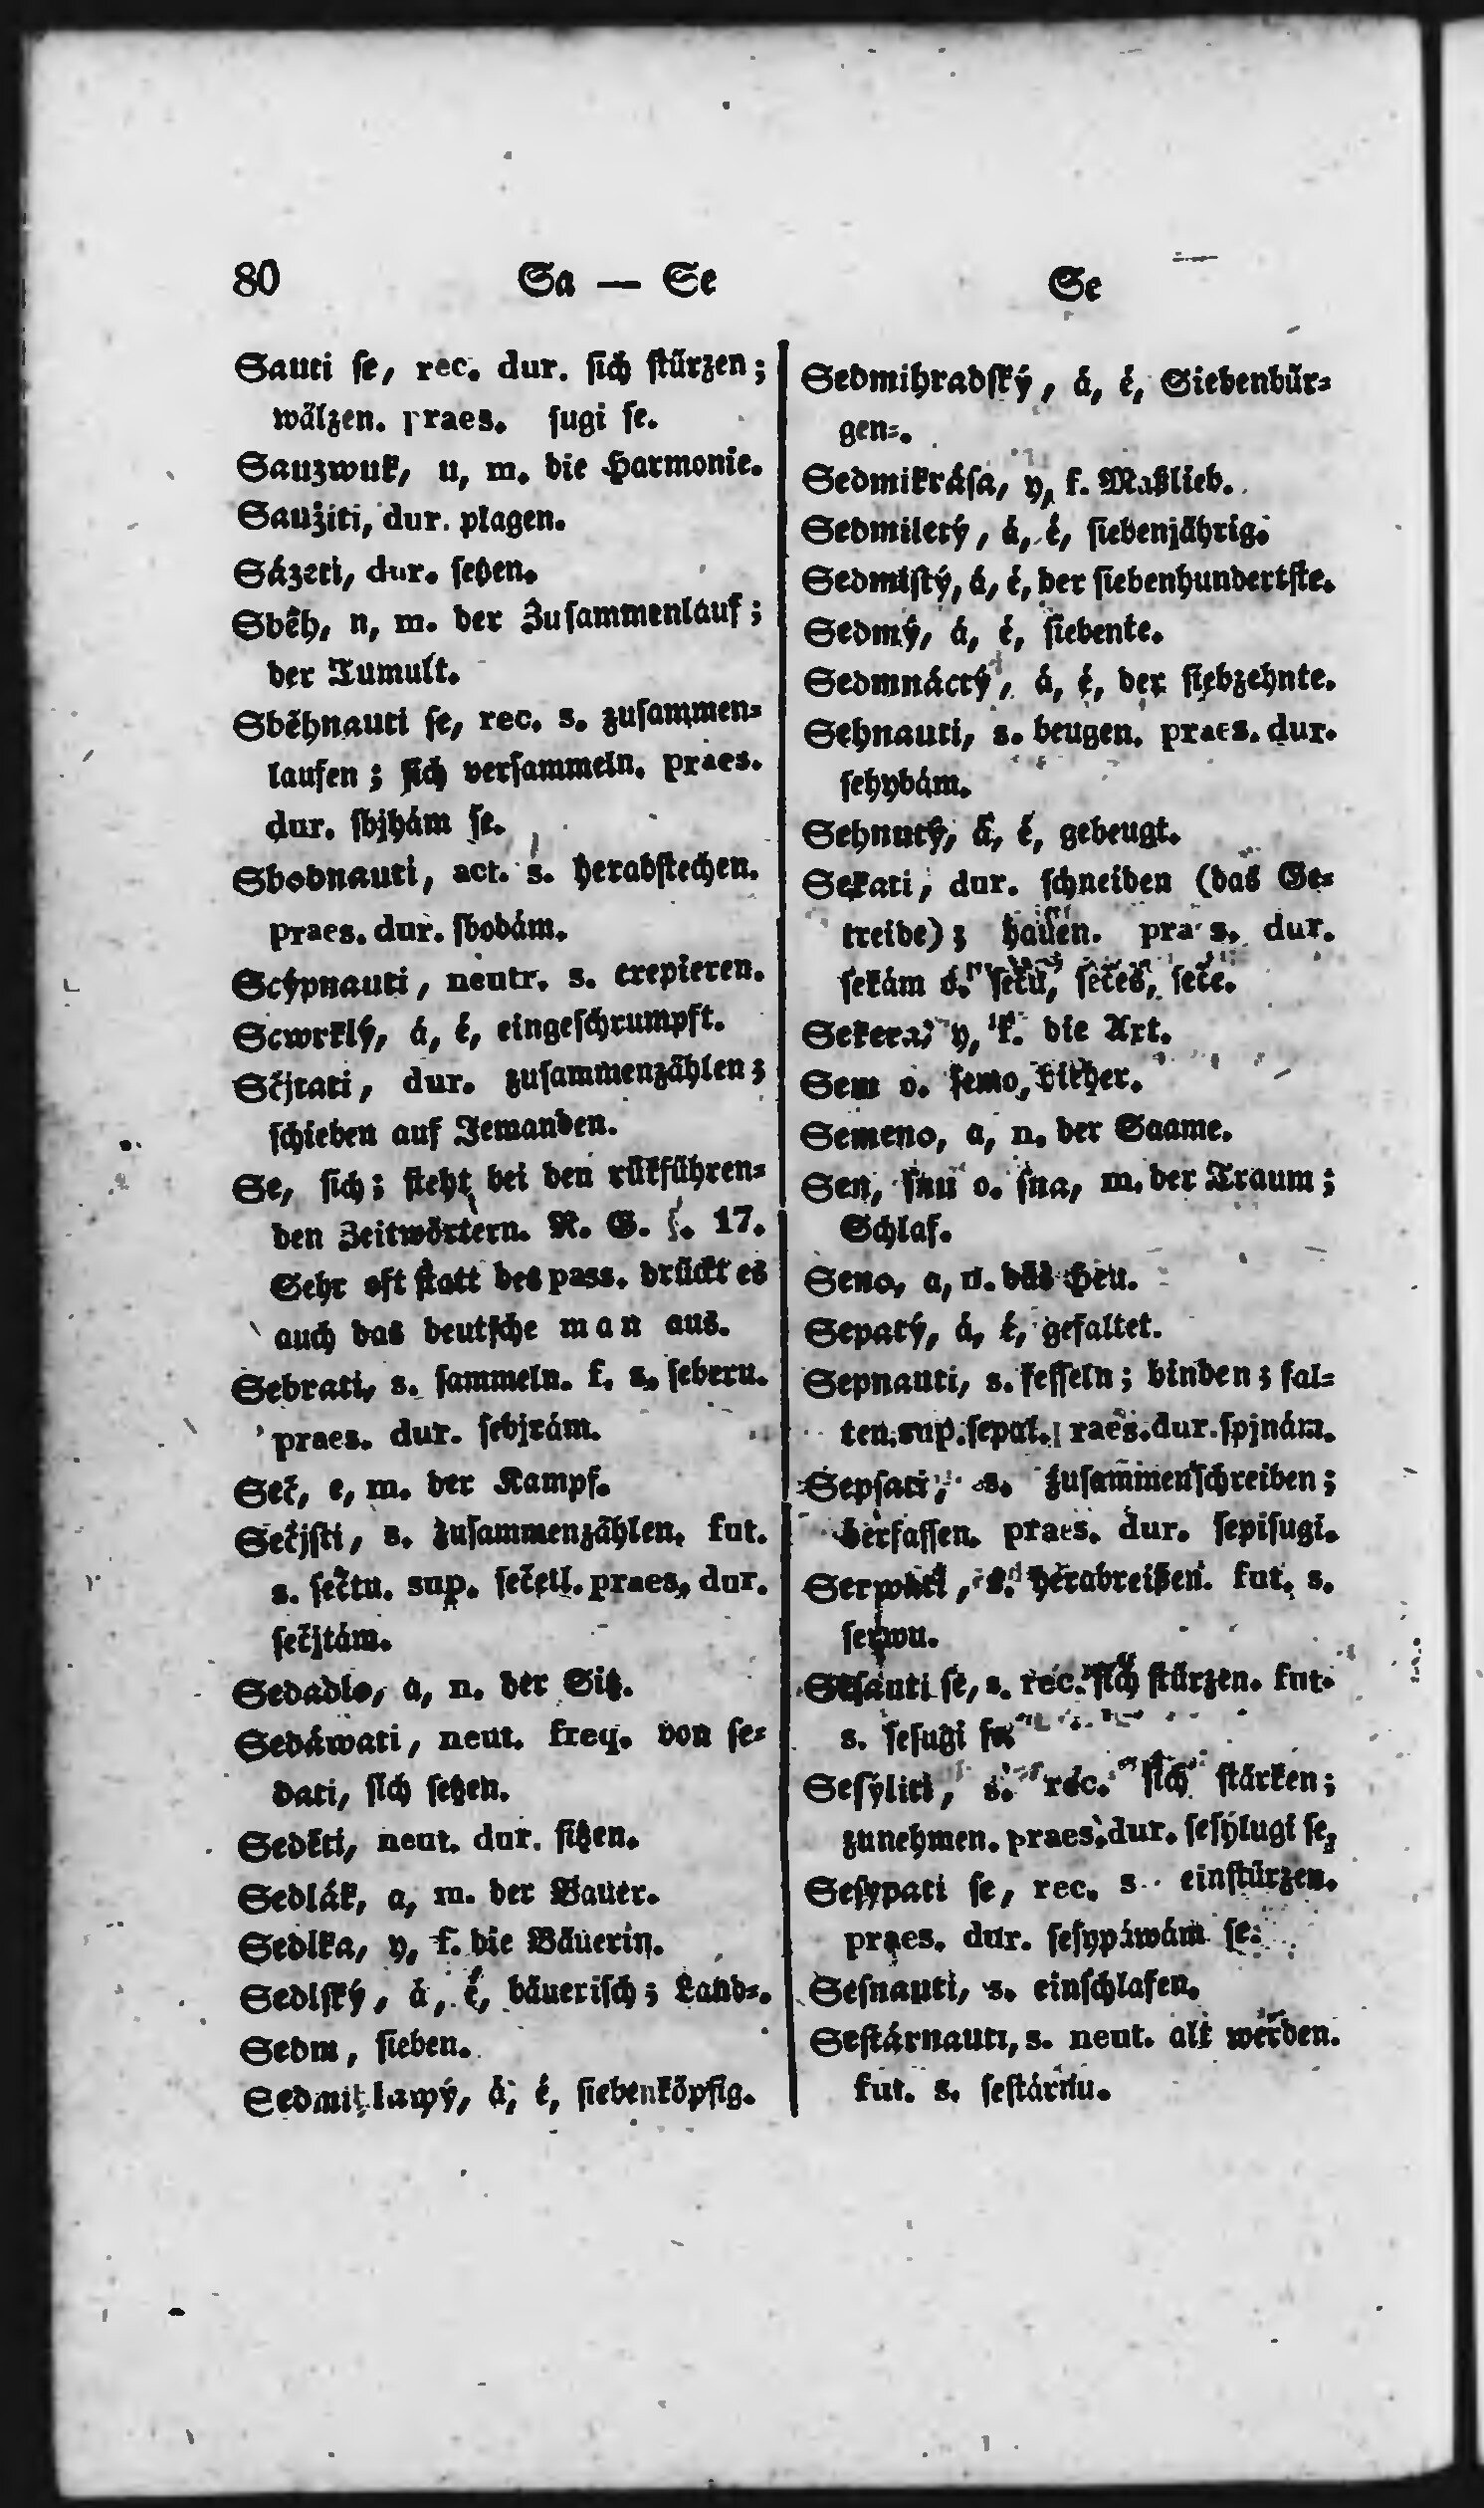 80 Sa — Se
Sauti ſe, rec. dur. ſich ſtürzen;
wälzen. praes. ſugi ſe.
Sauzwuk, u, m. die Harmonie.
Saužiti, dur. plagen.
Sázeti, dur. ſetzen.
Sběh, n, m. der Zuſammenlauf;
der Tumult.
Sběhnauti ſe, rec. s. zuſammen⸗
laufen; ſich verſammeln. praes.
dur. ſbjhám ſe.
Sbodnauti, act. s. herabſtechen.
praes. dur. ſbodám.
Scýpnauti, neutr. s. crepieren.
Scwrklý, á, é, eingeſchrumpft.
Sčjtati, dur. zuſammenzählen;
ſchieben auf Jemanden.
Se, ſich; ſteht bei den rükführen⸗
den Zeitwörtern. R. G. §. 17.
Sehr oft ſtatt des pass. drückt es
auch das deutſche man aus.
Sebrati, s. ſammeln. f. s. ſeberu.
praes. dur. ſebjrám.
Seč, e, m. der Kampf.
Sečjſti, s. zuſammenzählen. fut.
s. ſečtu. sup. ſečell. praes. dur.
ſečjtám.
Sedadlo, a, n. der Sitz.
Sedáwati, neut. freq. von ſe⸗
dati, ſich ſetzen.
Seděti, neut. dur. ſitzen.
Sedlák, a, m. der Bauer.
Sedlka, y, f. die Bäuerin.
Sedlſký, á, é, bäueriſch; Land⸗.
Sedm, ſieben.
Sedmihlawý, á, é, ſiebenköpfig.
Se
Sedmihradſký, á, é, Siebenbür⸗
gen⸗.
Sedmikráſa, y, f. Maßlieb.
Sedmiletý, á, é, ſiebenjährig.
Sedmiſtý, á, é, der ſiebenhundertſte.
Sedmý, á, é, ſiebente.
Sedmnáctý, á, é, der ſiebzehnte.
Sehnauti, s. beugen. praes. dur.
ſehybám.
Sehnutý, á, é, gebeugt.
Sekati, dur. ſchneiden (das Ge⸗
treide); hauen. praes. dur.
ſekám o. ſeku, ſečeš, ſeče.
Sekera, y, f. die Axt.
Sem o. ſemo, hieher.
Semeno, a, n. der Saame.
Sen, ſnu o. ſna, m. der Traum;
Schlaf.
Seno, a, n. das Heu.
Sepatý, á, é, gefaltet.
Sepnauti, s. feſſeln; binden; fal⸗
ten. sup. ſepal. praes. dur. ſpjnám.
Sepſati, s. zuſammenſchreiben;
verfaſſen. praes. dur. ſepiſugi.
Serwati, s. herabreißen. fut. s.
ſerwu.
Seſauti ſe, s. rec. ſich ſtürzen. fut.
s. ſeſugi ſe
Seſýliti, s. rec. ſich ſtärken;
zunehmen. praes. dur. ſeſýlugi ſe,
Seſypati ſe, rec. s. einſtürzen.
praes. dur. ſeſypáwám ſe.
Seſnauti, s. einſchlafen.
Seſtárnauti, s. neut. alt werden.
fut. s. ſeſtárnu.